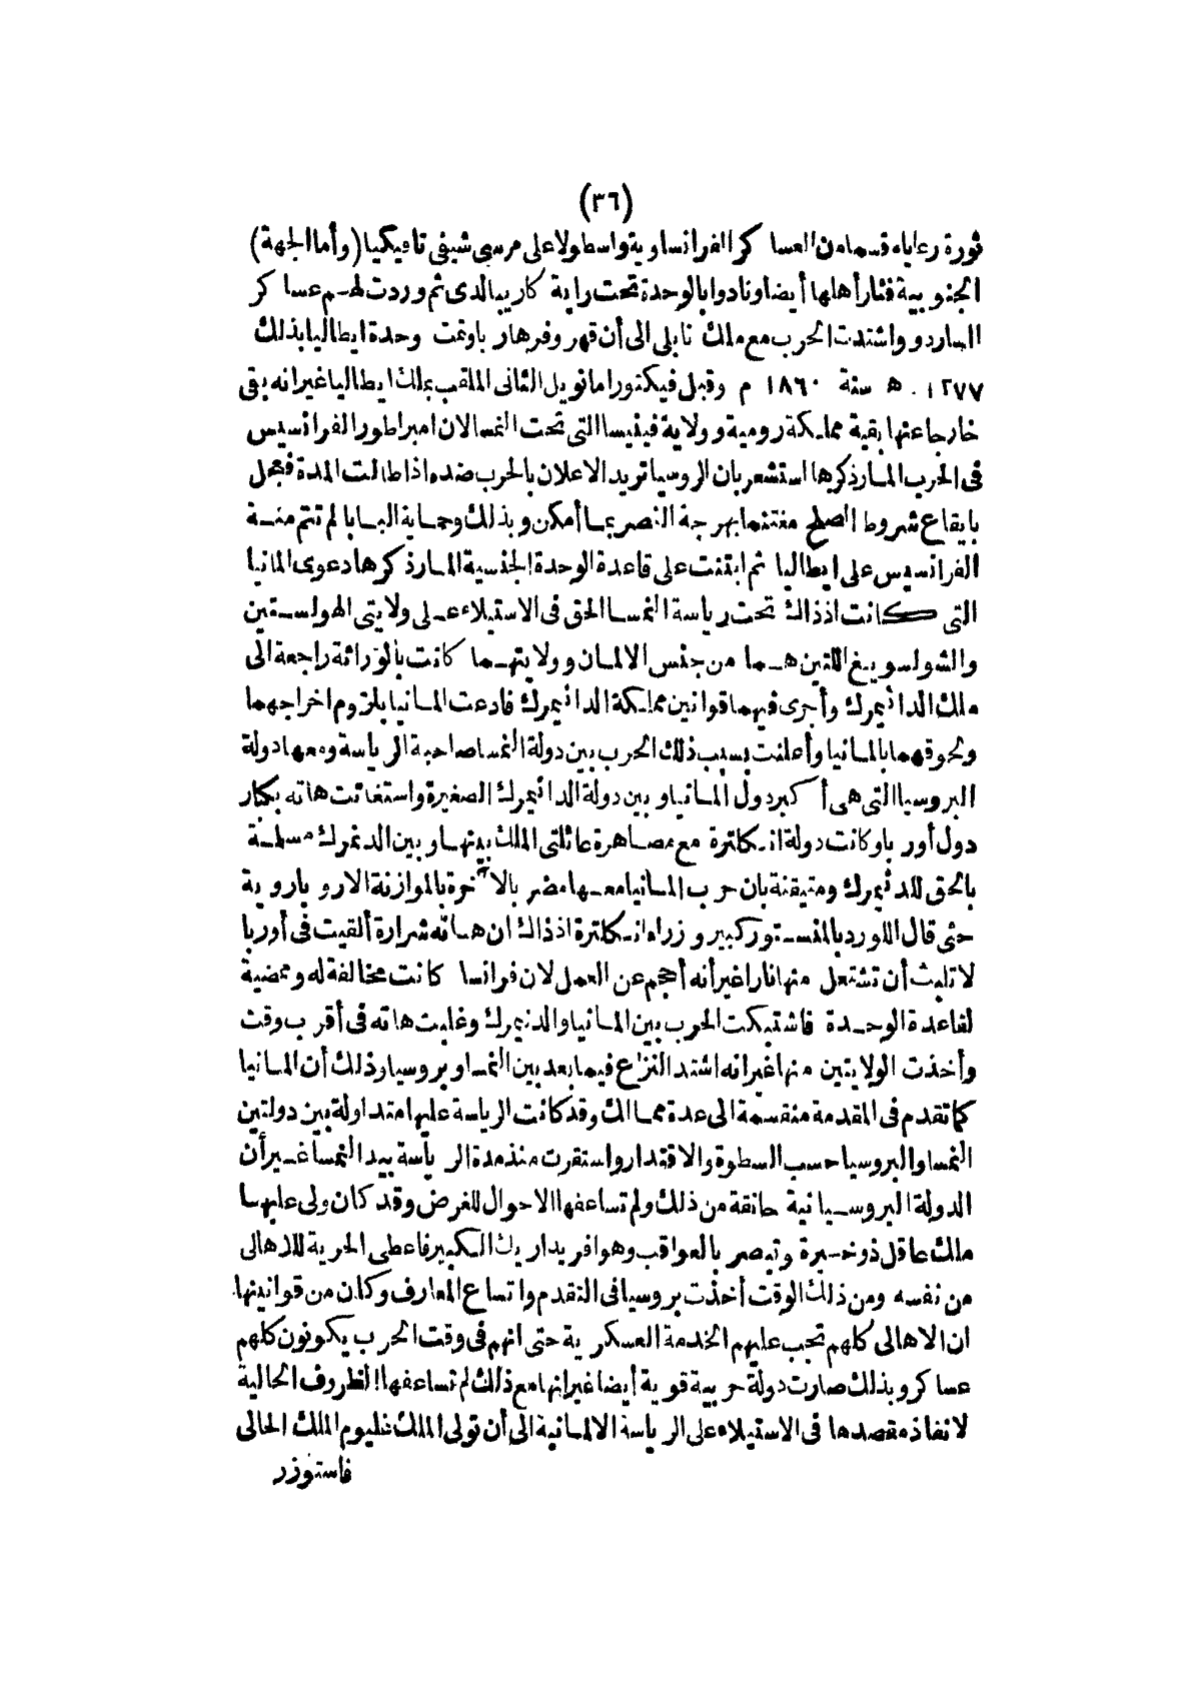 (٣٦)
ثورة رعاياه قسما من العساكر الفرانساوية واسطولا على مرسى شيفي تافيكيا (وأما الجهة)
الجنوبية فثار أهلها أيضا ونادوا بالوحدة تحت راية كاريبالدى ثم وردت لهم عساكر
الساردو واشتدت الحرب مع ملك نابلى الى أن قهر وفر هاربا وتمت وحدة ايطاليا بذلك
١٢٧٧ ه سنة ١٨٦٠ م وقبل فيكتورامانويل الثانى الملقب بملك ايطاليا غيرانه بقى
خارجا عنها بقية مملكة رومية وولاية فينيسا التى تحت النمسالان امبراطور الفرانسيس
فى الحرب المارذكرها استشعر بان الروسيا تريد الاعلان بالحرب ضده اذا طالت المدة فعجل
بايقاع شروط الصلح مغتنما بهرجة النصر بما أمكن وبذلك وحماية البابا لم تتم منة
الفرانسيس على ايطاليا ثم ابتنت على قاعدة الوحدة الجنسية المارذكرها دعوى المانيا
التى كانت اذذاك تحت رياسة النمسا الحق فى الاستيلاء على ولايتى الهولستين
والشولسويغ اللتين هما من جنس الالمان وولايتهما كانت بالوراثة راجعة الى
ملك الدانيمرك وأجرى فيهما قوانين مملكة الدانيمرك فادعت المانيا بلزوم اخراجهما
ولحوقهما بالمانيا وأعلنت بسبب ذلك الحرب بين دولة النمسا صاحبة الرياسة ومعها دولة
البروسيا التى هى أكبر دول المانيا وبين دولة الدانيمرك الصغيرة واستغاثت هاته بكبار
دول أوربا وكانت دولة انكلترة مع مصاهرة عائلتى الملك بينها وبين الدنمرك مسلمة
بالحق للدنيمرك ومتيقنة بان حرب المانيا معها مضر بالآخرة بالموازنة الاروباروية
حتى قال اللورد بالمنستور كبير وزراء انكلترة اذذاك ان هاته شرارة ألقيت فى أوربا
لا تلبث أن تشتعل منها نارا غير أنه أحجم عن العمل لان فرانسا كانت مخالفة له وممضية
لقاعدة الوحدة فاشتبكت الحرب بين المانيا والدنيمرك وغلبت هاته فى أقرب وقت
وأخذت الولايتين منها غيرانه اشتد النزاع فيما بعد بين النمسا وبروسيا وذلك أن المانيا
كما تقدم فى المقدمة منقسمة الى عدة ممالك وقد كانت الرياسة عليها متداولة بين دولتين
النمسا والبروسيا حسب السطوة والاقتدار واستقرت منذ مدة الرياسة بيد النمسا غير أن
الدولة البروسيانية حانقة من ذلك ولم تساعفها الاحوال للغرض وقد كان ولى عليها
ملك عاقل ذو خبرة وتبصر بالعواقب وهو افريداريك الكبير فاعطى الحرية للاهالى
من نفسه ومن ذلك الوقت أخذت بروسيا فى التقدم واتساع المعارف وكان من قوانينها
ان الاهالى كلهم تجب عليهم الخدمة العسكرية حتى انهم فى وقت الحرب يكونون كلهم
عساكر وبذلك صارت دولة حربية قوية أيضا غيرانها مع ذلك لم تساعفها الظروف الحالية
لانفاذ مقصدها فى الاستيلاء على الرياسة الالمانية الى أن تولى الملك غليوم الملك الحالى
فاستوزر